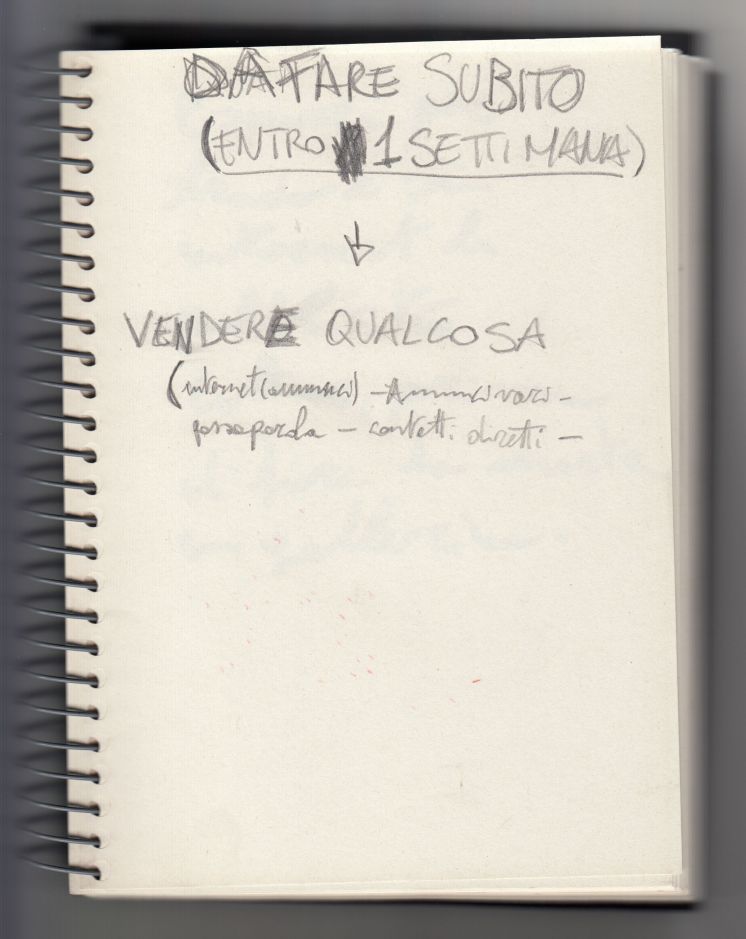 DA FARE SUBITO
(ENTRO 1 SETTIMANA)
VENDERE QUALCOSA
(internet (annunci) - Annunci vari -
passaparola - contatti diretti -